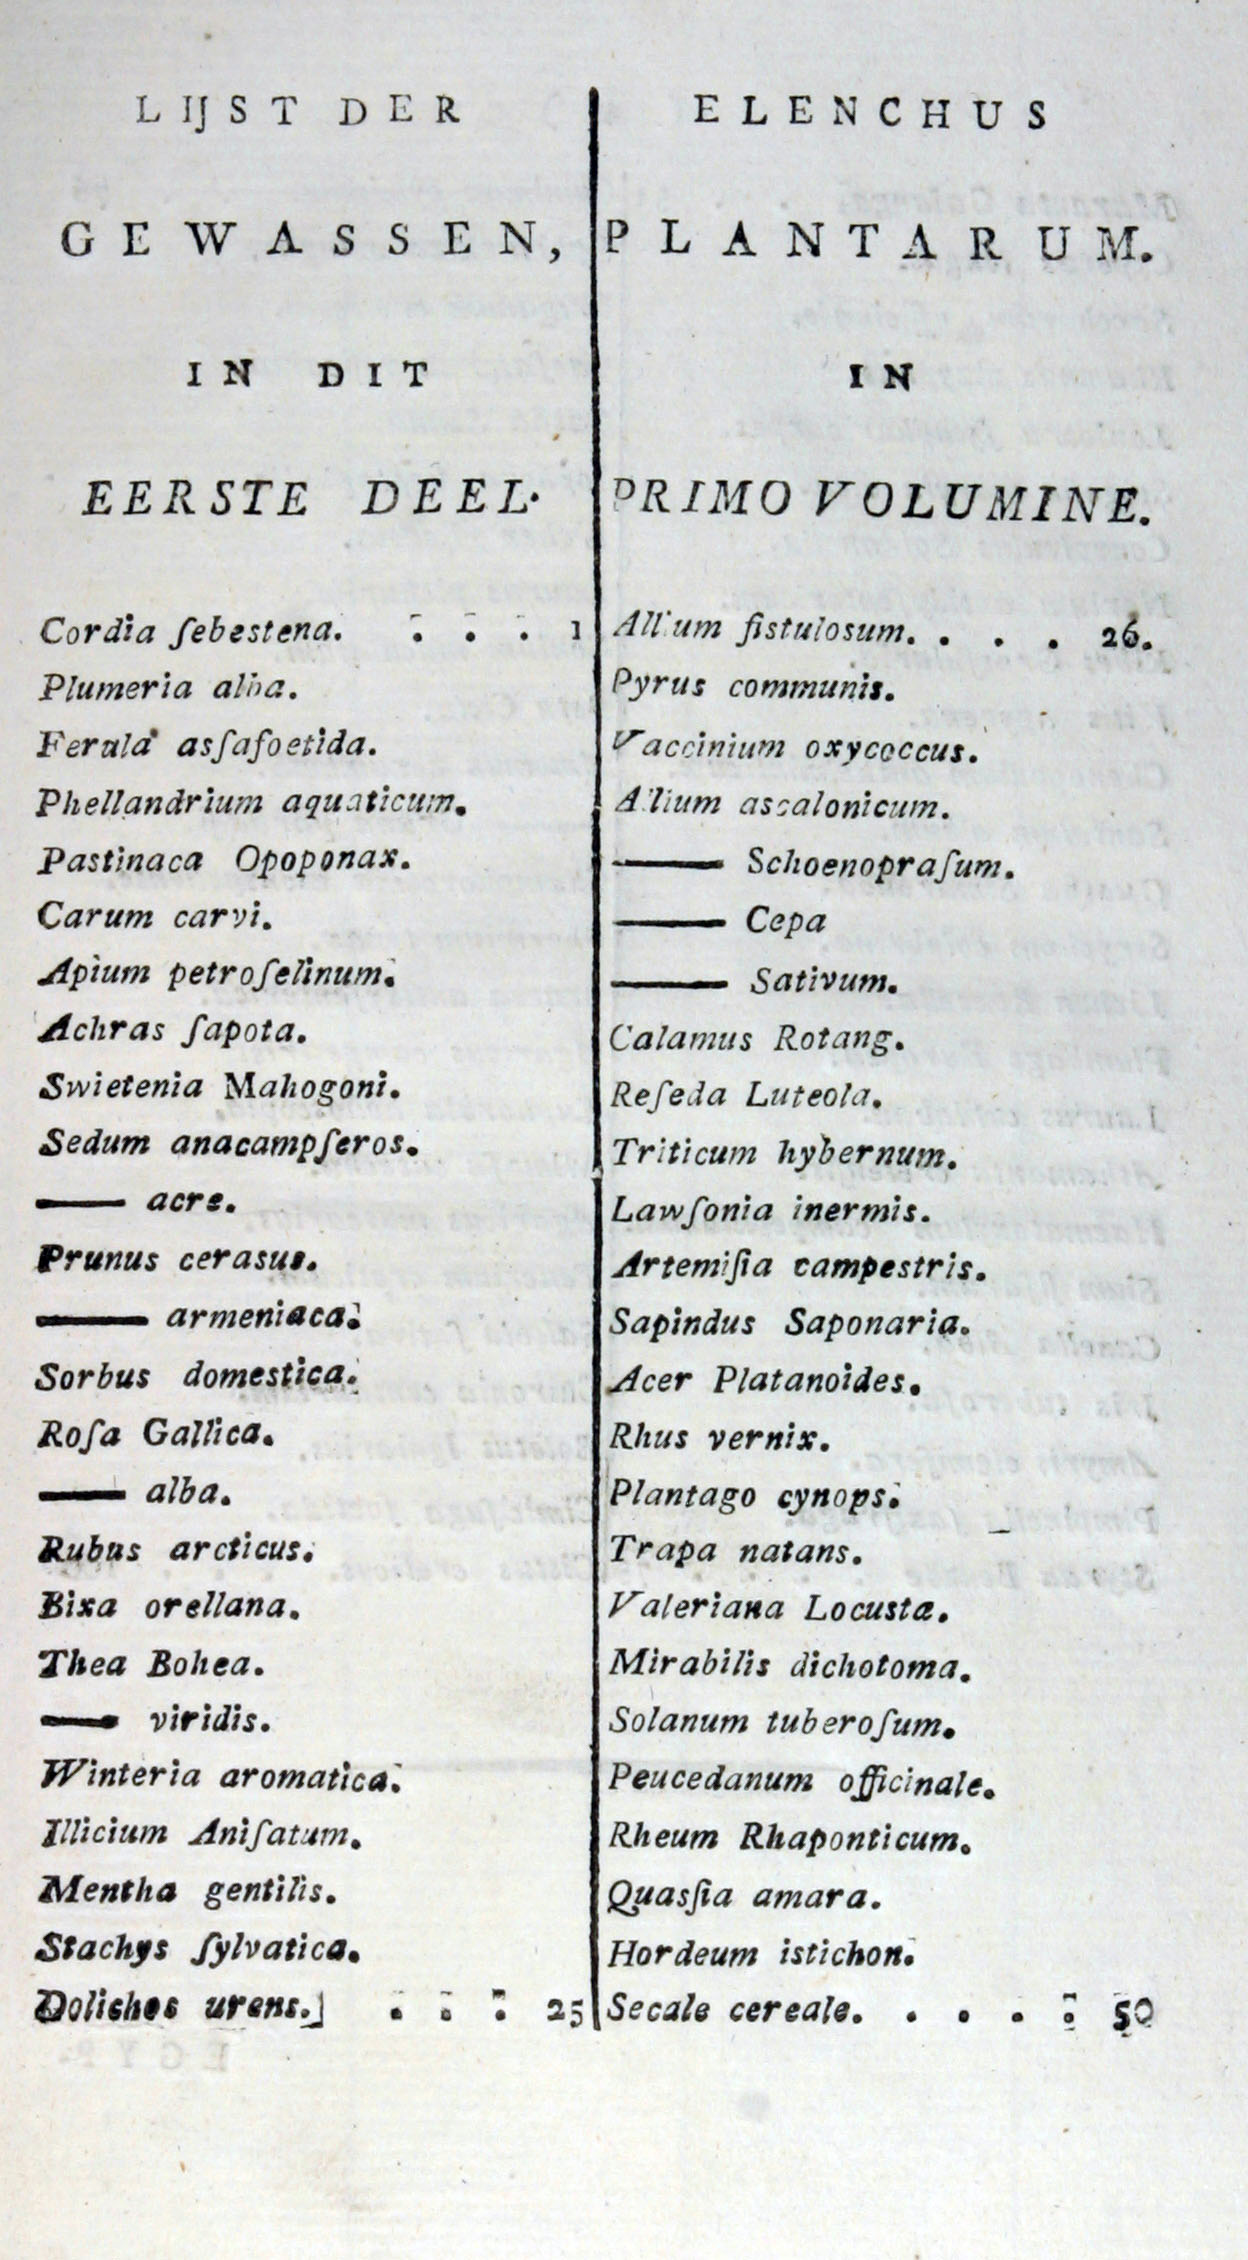 LIJST DER
GEWASSEN,
IN DIT
EERSTE DEEL.
Cordia ſebestena. . . . 1
Plumeria alba.
Ferula asſafoetida.
Phellandrium aquaticum.
Pastinaca Opoponax.
Carum carvi.
Apium petroſelinum.
Achras ſapota.
Swietenia Mahogoni.
Sedum anacampſeros.
—— acre.
Prunus cerasus.
—— armeniaca.
Sorbus domestica.
Roſa Gallica.
—— alba.
Rubus arcticus.
Bixa orellana.
Thea Bohea.
—— viridis.
Winteria aromatica.
Illicium Aniſatum.
Mentha gentilis.
Stachys ſylvatica.
Dolichos urens. . . . 25
ELENCHUS
PLANTARUM.
IN
PRIMO VOLUMINE.
Allium fistulosum. . . . 26.
Pyrus communis.
Vaccinium oxycoccus.
Allium ascalonicum.
—— Schoenopraſum.
—— Cepa
—— Sativum.
Calamus Rotang.
Reſeda Luteola.
Triticum hybernum.
Lawſonia inermis.
Artemiſia campestris.
Sapindus Saponaria.
Acer Platanoides.
Rhus vernix.
Plantago cynops.
Trapa natans.
Valeriana Locusta.
Mirabilis dichotoma.
Solanum tuberoſum.
Peucedanum officinale.
Rheum Rhaponticum.
Quasſia amara.
Hordeum istichon.
Secale cereale. . . . . 50